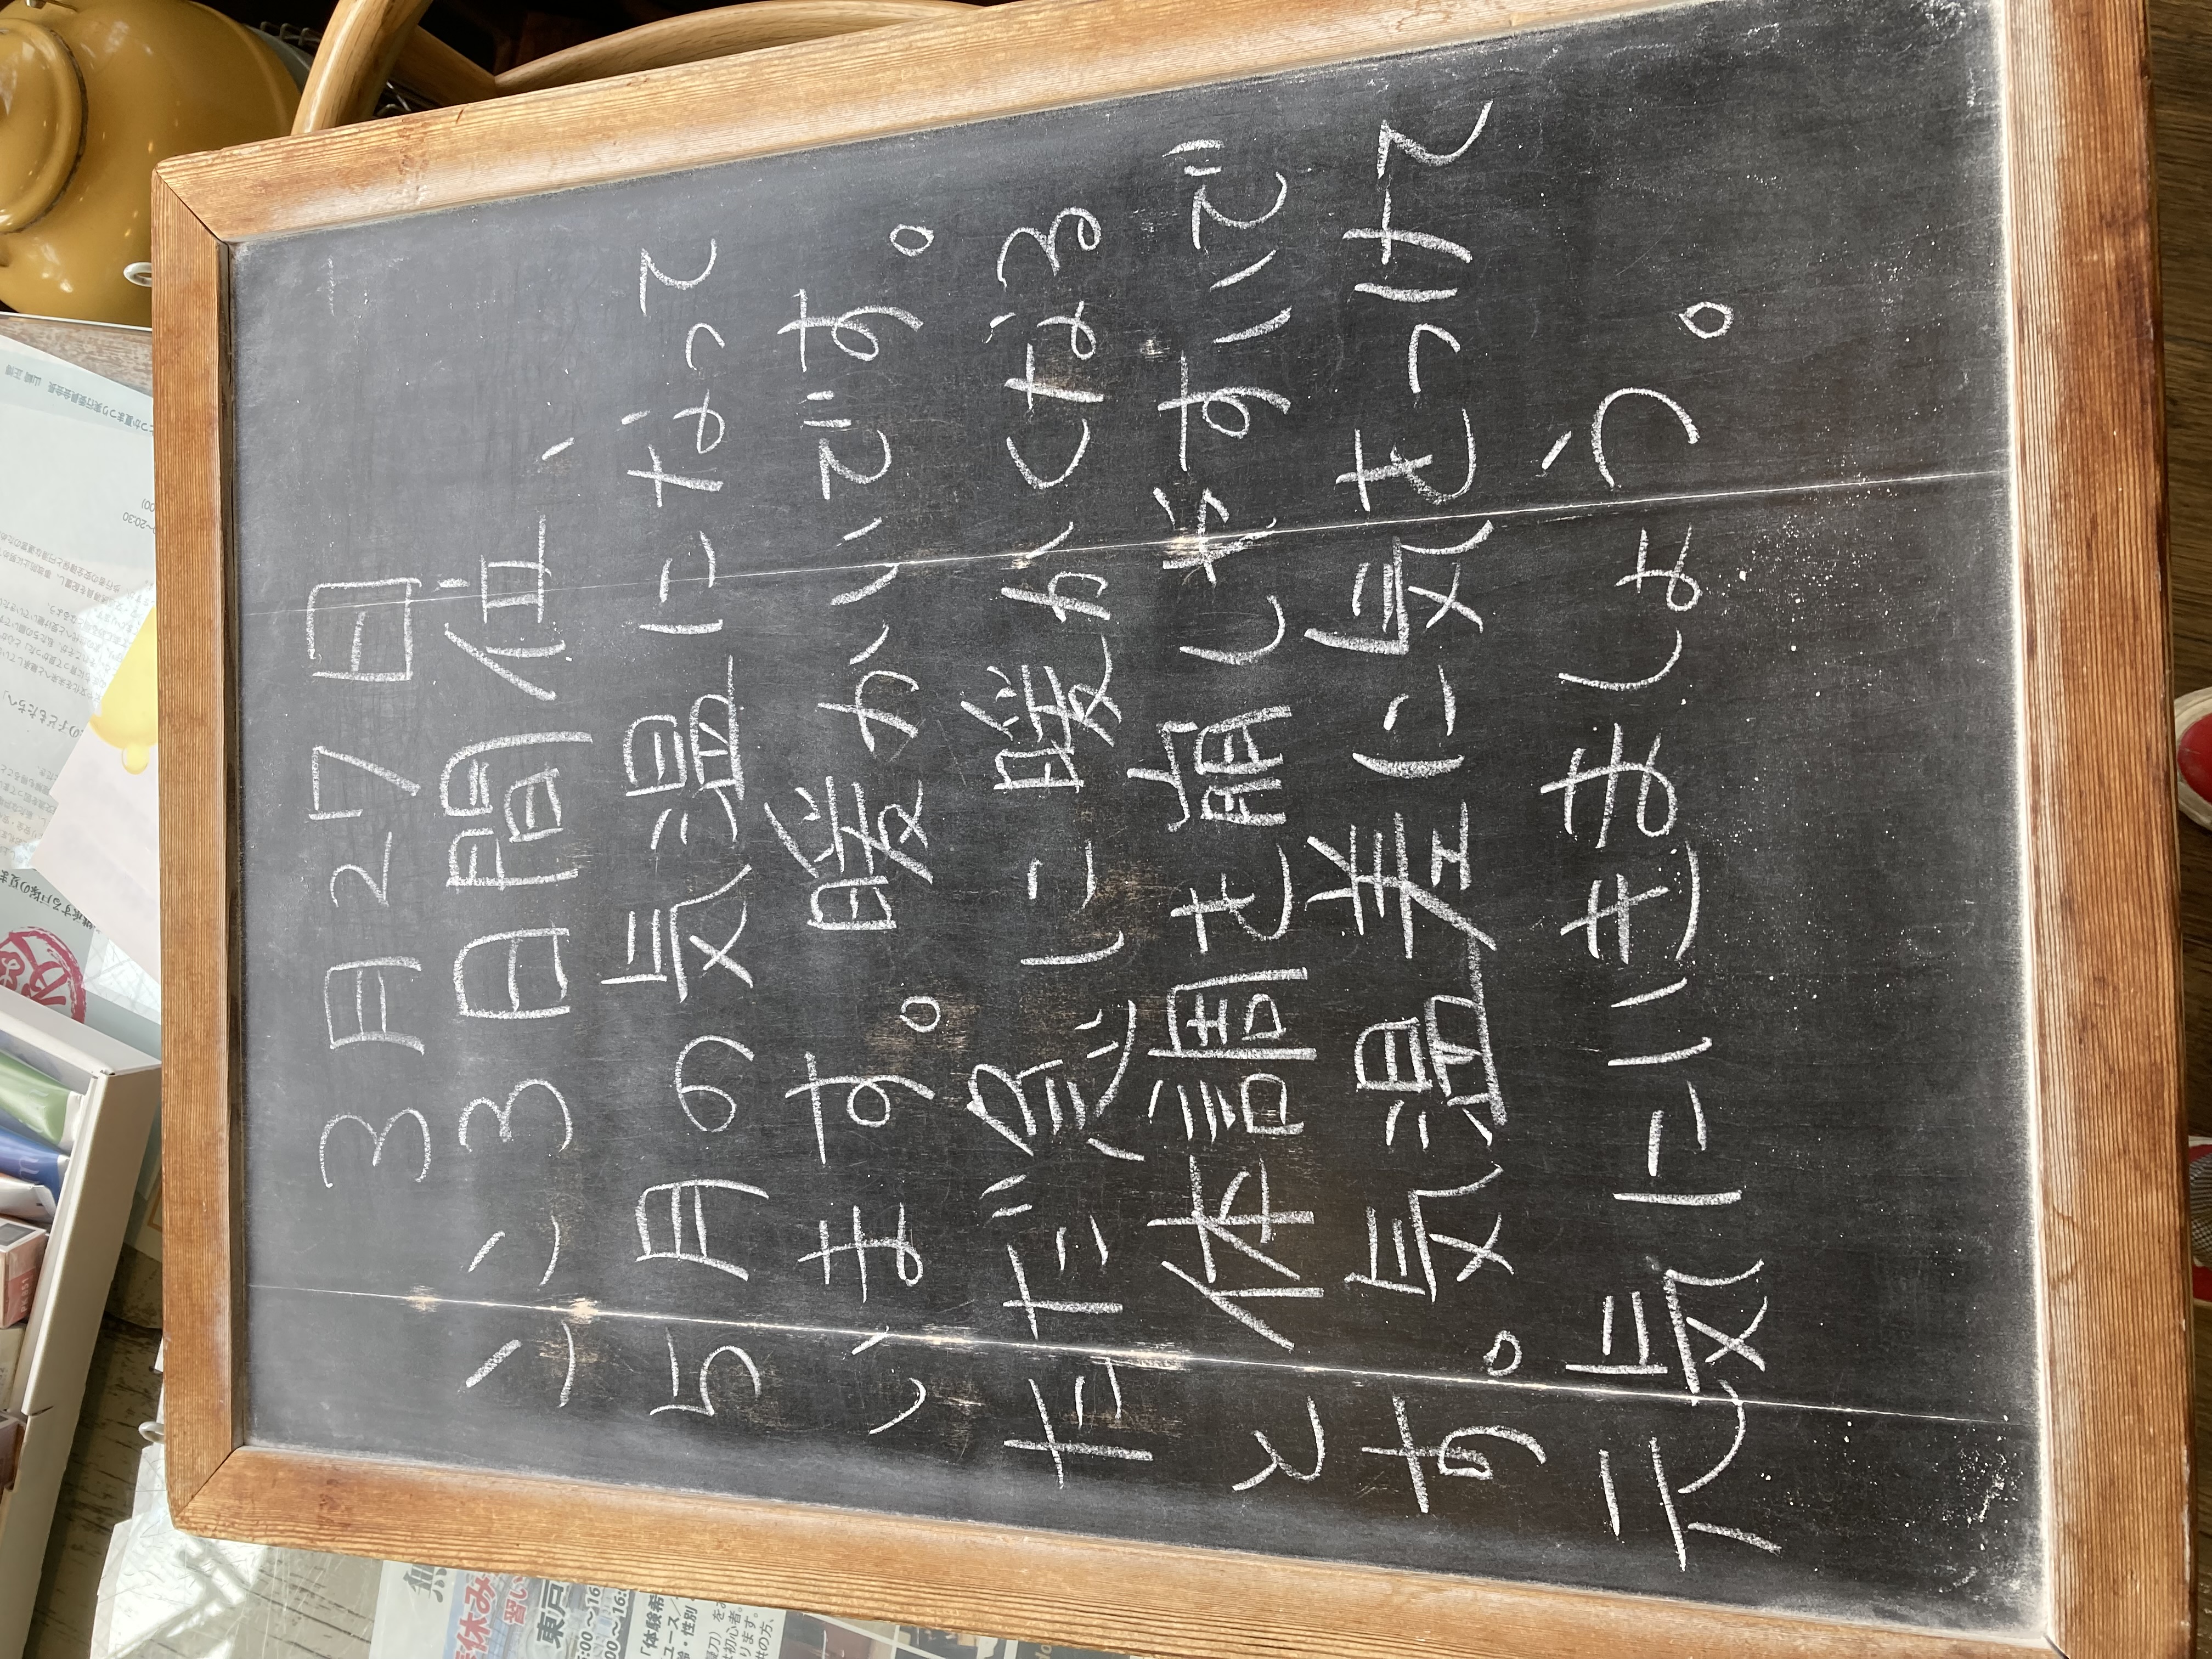 3月27日
ここ3日間位、
5月の気温になって
います。暖かいです。
ただ急に暖かくなる
と体調を崩しやすいで
す。気温差に気をつけて
元気にいきましょう。